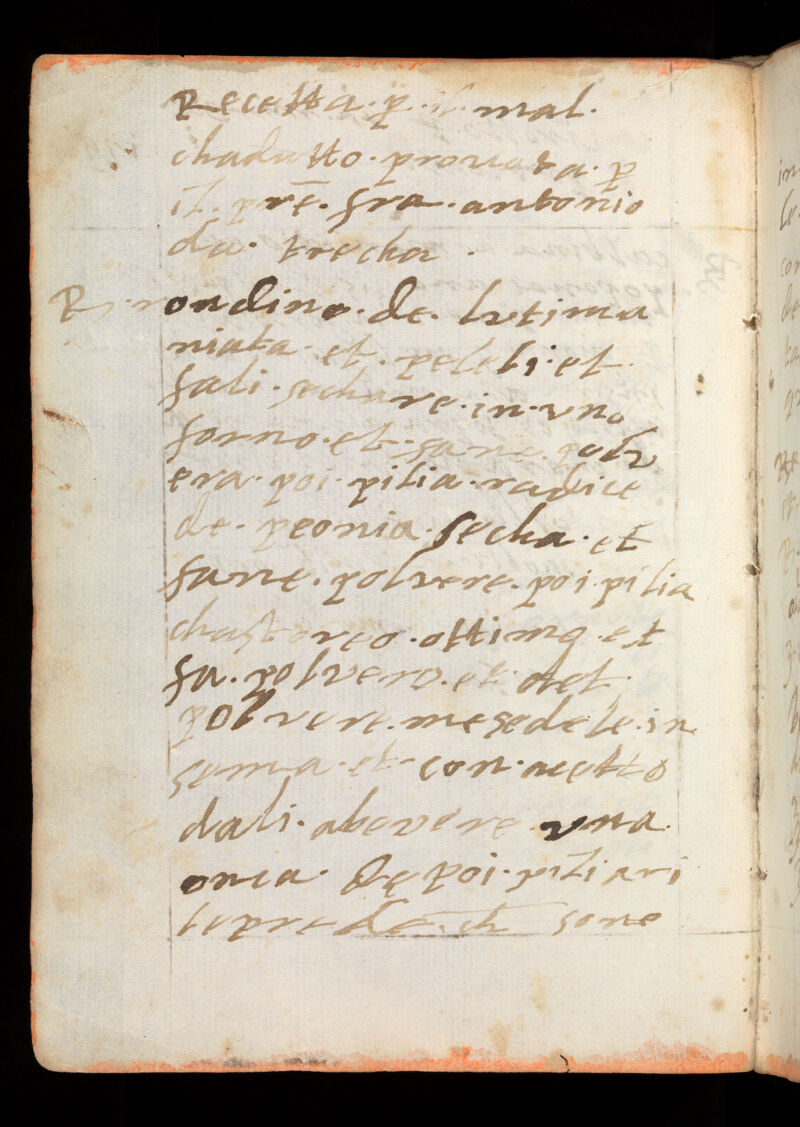 Recetta · p̱ · il · mal ·
chadutto · prouata · p̱
il · pr̄e · fra · antonio
da · trecha ·
R · rondino · de · lutima
niata · et · peleli · et
fali · sechare · in · vno
forno · et · fane · polv
era · poi · pilia · radice
de · peonia · secha · et
fane · polvere · poi · pilia
chastoreo · ottimo · et
fa · polvero · et · det
polvere · mesedele · in
sema · et · con · acetto
dali · abevere · vna
onca · de poi · piliari
le prede · ch sone